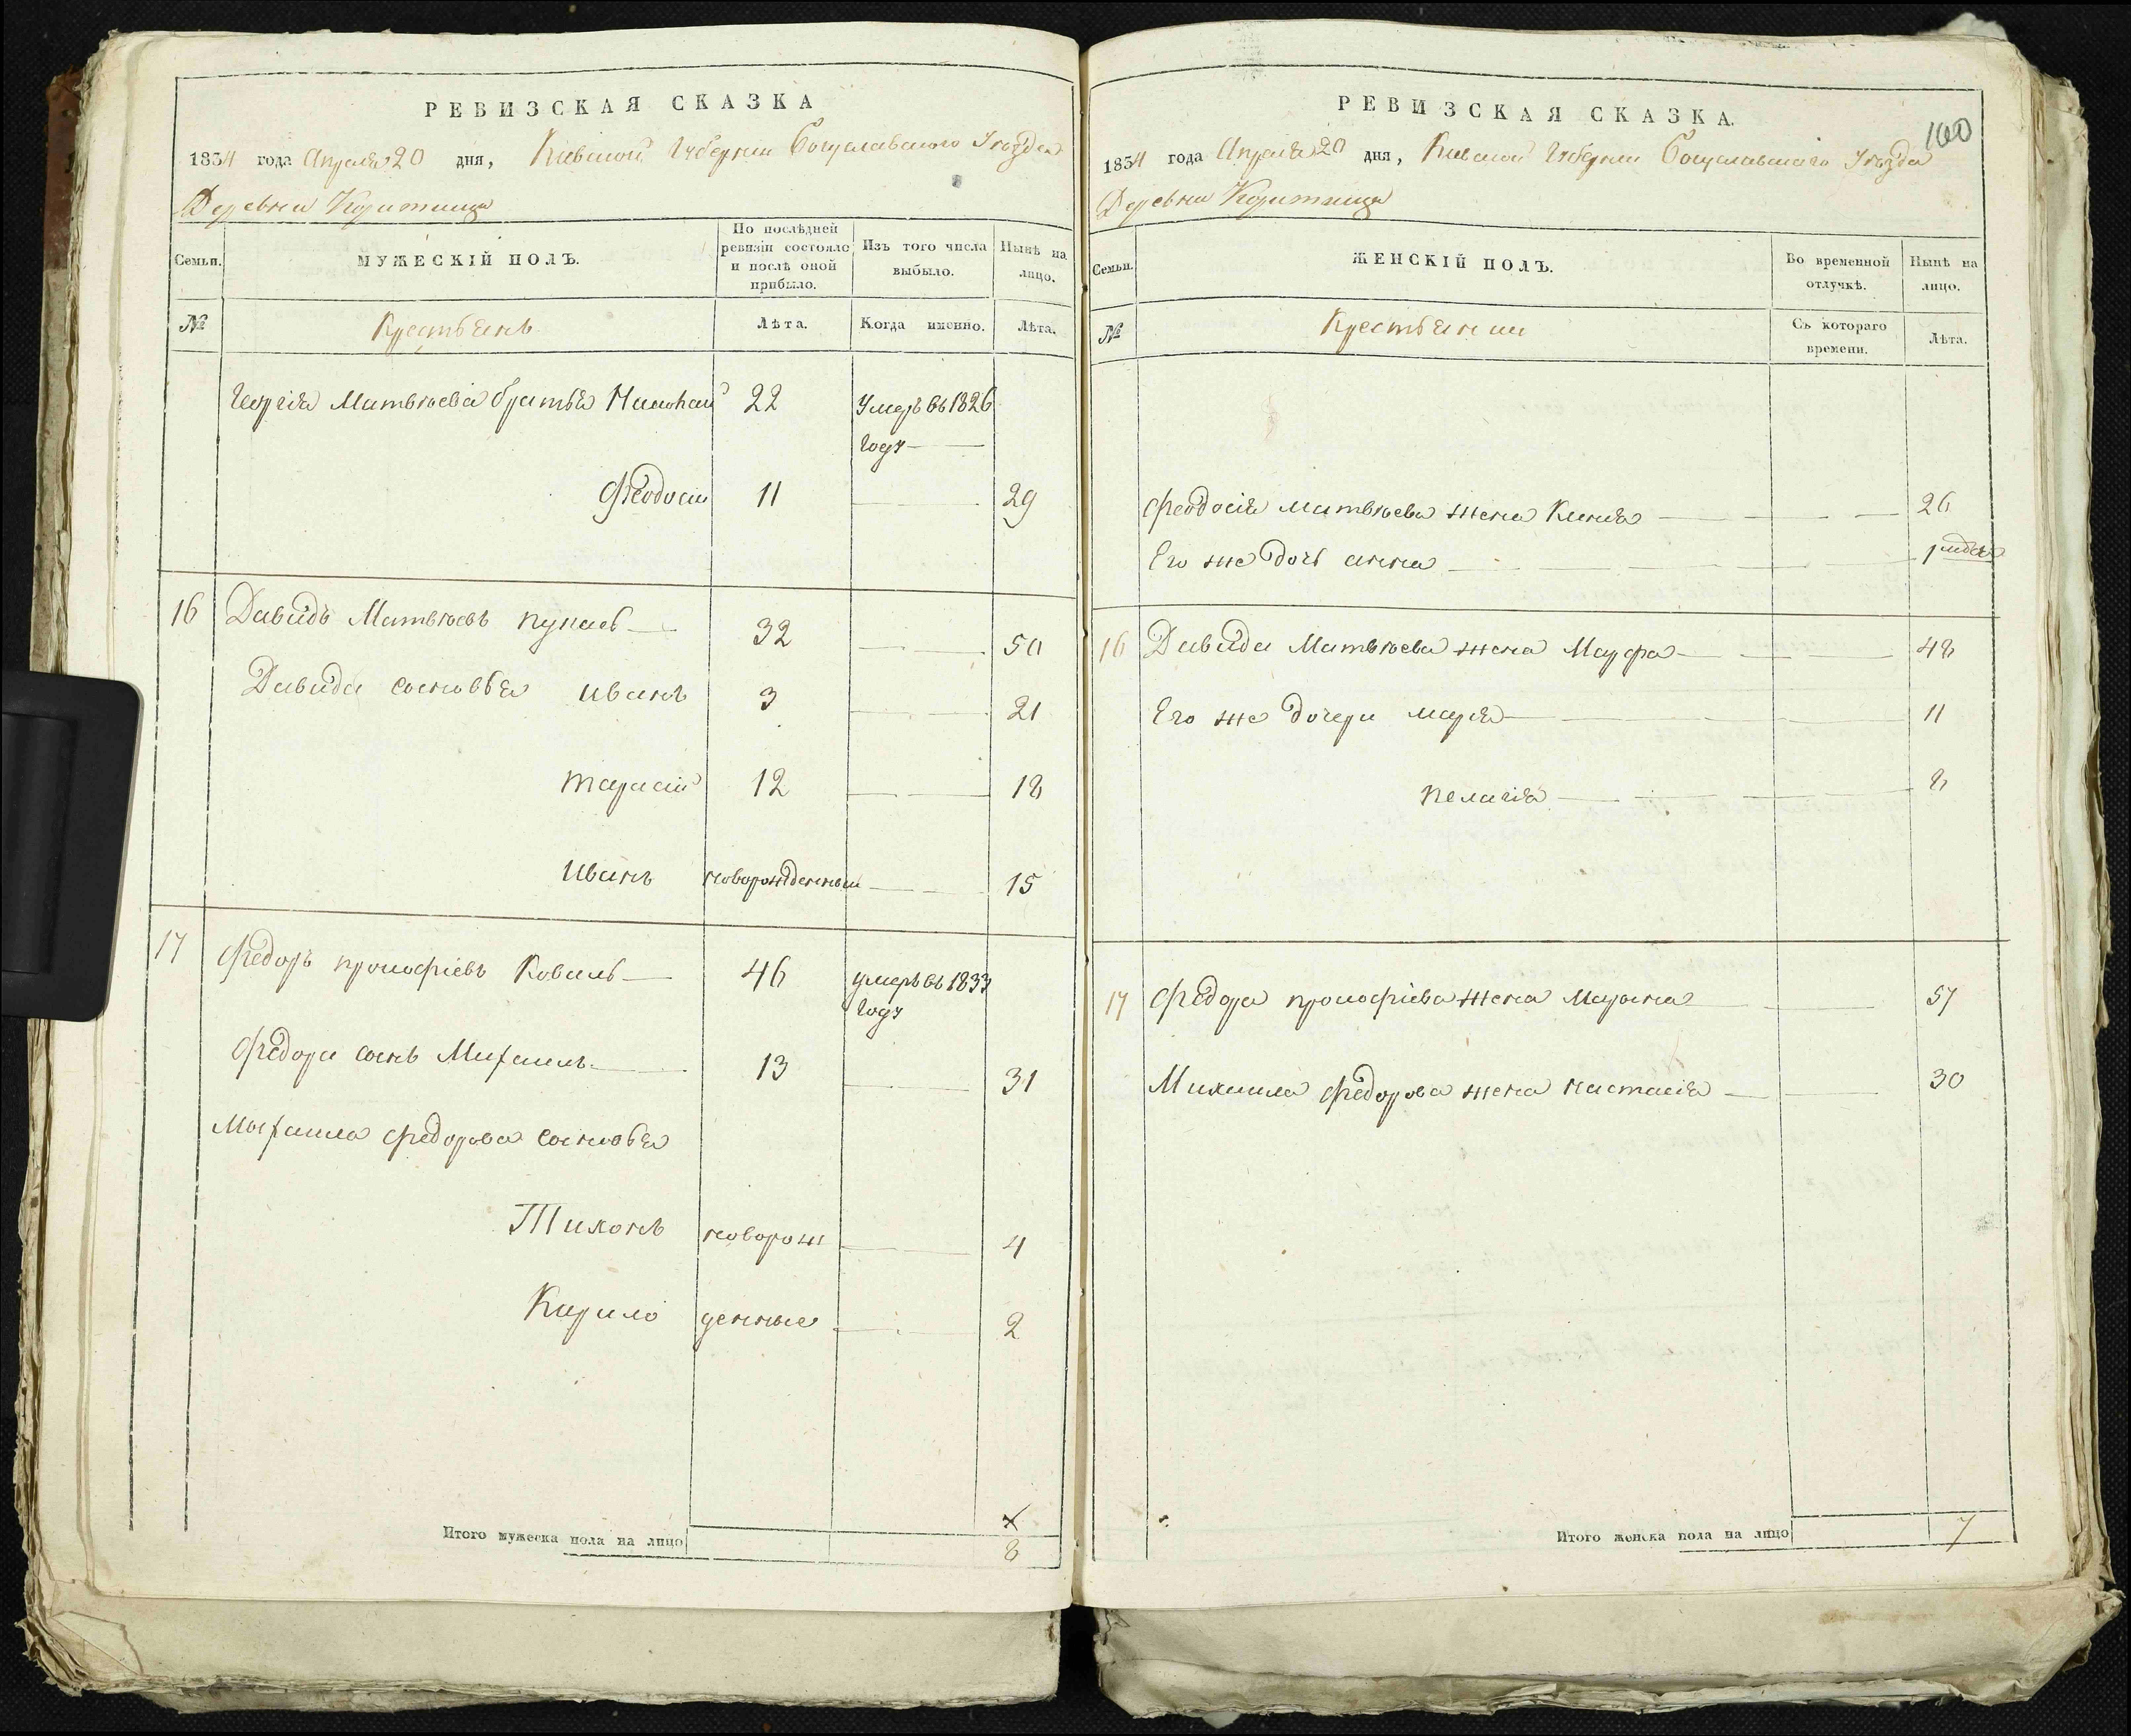 РЕВИЗСКАЯ СКАЗКА
1834 года Апреля 20 дня, Кіевской Губерніи Богуславского Уѣзда
Деревни Коритища
Семьи.
МУЖЕСКІЙ ПОЛЪ.
По послѣдней
ревизіи состояло
и послѣ оной
прибыло.
Изъ того числа
выбыло.
Нынѣ на
лицо.
№
Крестьянъ
Лѣта.
Когда именно.
Лѣта.
Георгія Матвѣева братья 22 Умеръ въ 1826
году
Феодосій 11 29
16 Давидъ Матвѣевъ 32 50
Давида сыновья Иванъ 3 21
тарасій 12 18
Иванъ новорожденный 15
17 Федоръ прокофіевъ Коваль 46 умеръ въ 1833
году
Федора сынъ Михаилъ 13 31
Михаила Федорова сыновья
Тихонъ новорож 4
Кирило денные 2
Итого мужеска пола на лицо
8
РЕВИЗСКАЯ СКАЗКА.
100
1834 года Апреля 20 дня, Кіевской Губерніи Богуславскаго Уѣзда
Деревни Коритища
Семьи.
ЖЕНСКІЙ ПОЛЪ.
Во временной
отлучкѣ.
Нынѣ на
лицо.
№
Крестьянки
Съ котораго
времени.
Лѣта.
Феодосія матвѣева жена Ксенія 26
Его же дочь анна 1
16 Давида Матвѣева жена Марфа 48
Его же дочери марія 11
пелагія 8
17 Федора прокофіева жена Марина 57
Михаила Федорова жена настасія 30
Итого женска пола на лицо 7